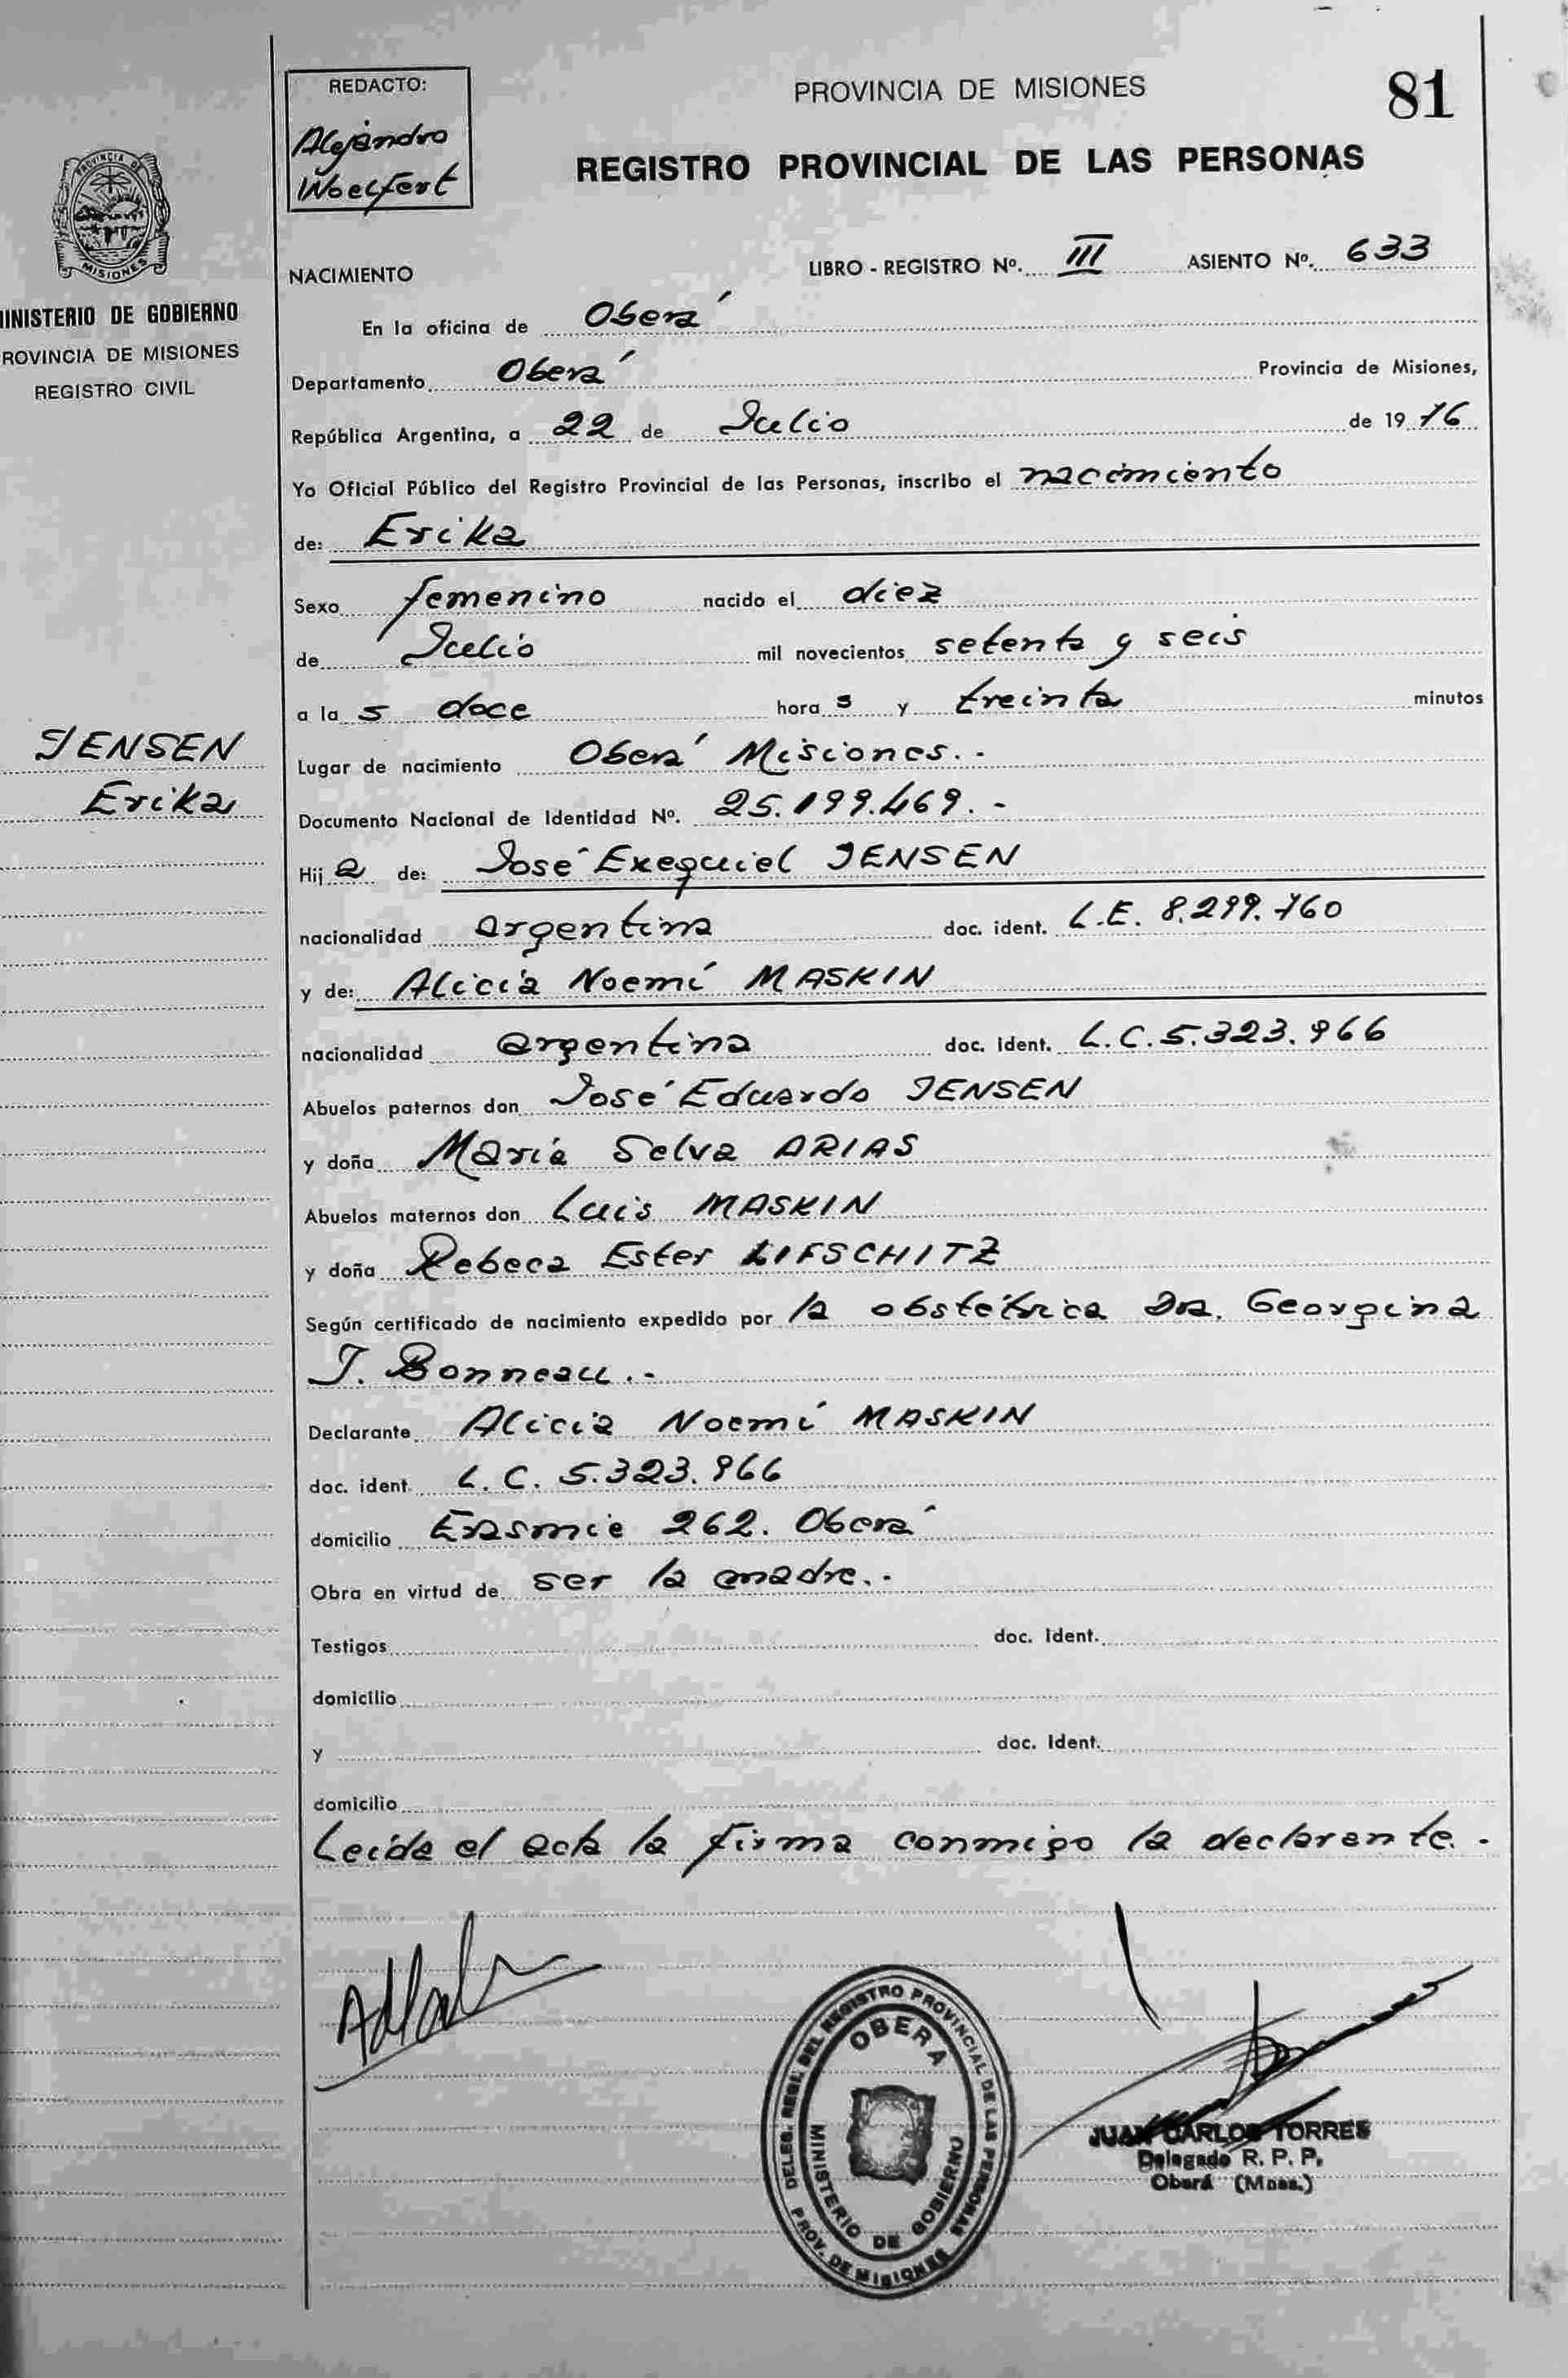 REDACTO:
Alejandro
Woelfert
PROVINCIA DE MISIONES
81
REGISTRO PROVINCIAL DE LAS PERSONAS
PROVINCIA DE
MISIONES
MINISTERIO DE GOBIERNO
PROVINCIA DE MISIONES
REGISTRO CIVIL
NACIMIENTO LIBRO - REGISTRO Nº. III ASIENTO Nº. 633
En la oficina de Oberá
Departamento Oberá Provincia de Misiones,
República Argentina, a 22 de Julio de 19 76
Yo Oficial Público del Registro Provincial de las Personas, inscribo el nacimiento
de: Erika
Sexo femenino nacido el diez
de Julio mil novecientos setenta y seis
a la s doce hora s y treinta minutos
JENSEN
Erika
Lugar de nacimiento Oberá Misiones.-
Documento Nacional de Identidad Nº. 25.199.469.-
Hij a de: José Exequiel JENSEN
nacionalidad argentina doc. ident. L.E. 8.299.760
y de: Alicia Noemí MASKIN
nacionalidad argentina doc. ident. L.C. 5.323.966
Abuelos paternos don José Eduardo JENSEN
y doña María Selva ARIAS
Abuelos maternos don Luis MASKIN
y doña Rebeca Ester LIFSCHITZ
Según certificado de nacimiento expedido por la obstétrica Dra. Georgina
J. Bonneau.-
Declarante Alicia Noemí MASKIN
doc. ident. L.C. 5.323.966
domicilio 262. Oberá
Obra en virtud de ser la madre.-
Testigos doc. ident.
domicilio
y doc. ident.
domicilio
Leída el acta la firma conmigo la declarente.-
DELEG. REGL. DEL REGISTRO PROVINCIAL DE LAS PERSONAS
OBERA
MINISTERIO DE GOBIERNO
PROV. DE MISIONES
JUAN CARLOS TORRES
Delegado R. P. P.
Oberá (Mnes.)